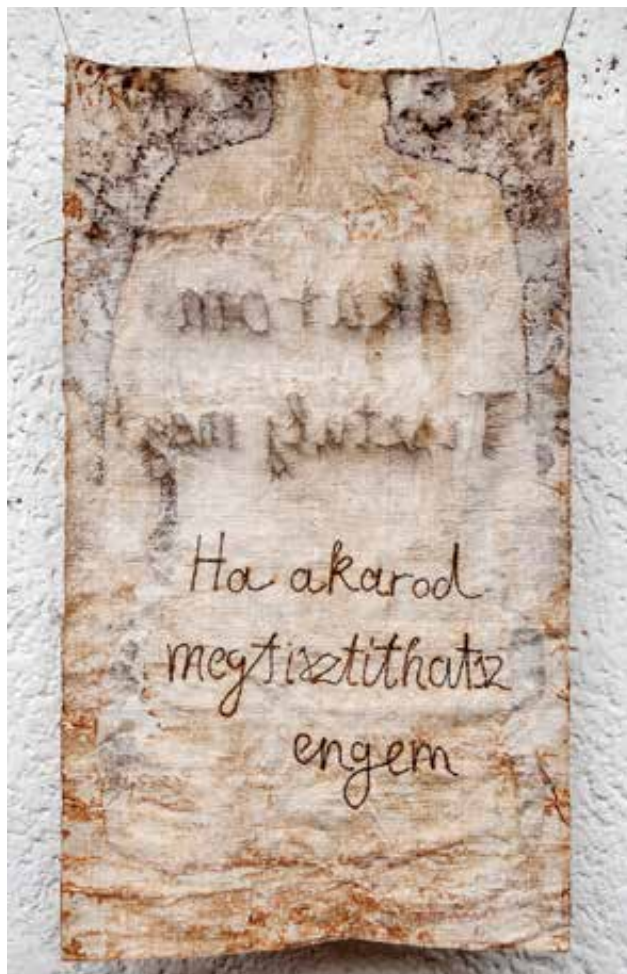 Akarom
Tisztulj meg
Ha akarod
megtisztíthatsz
engem